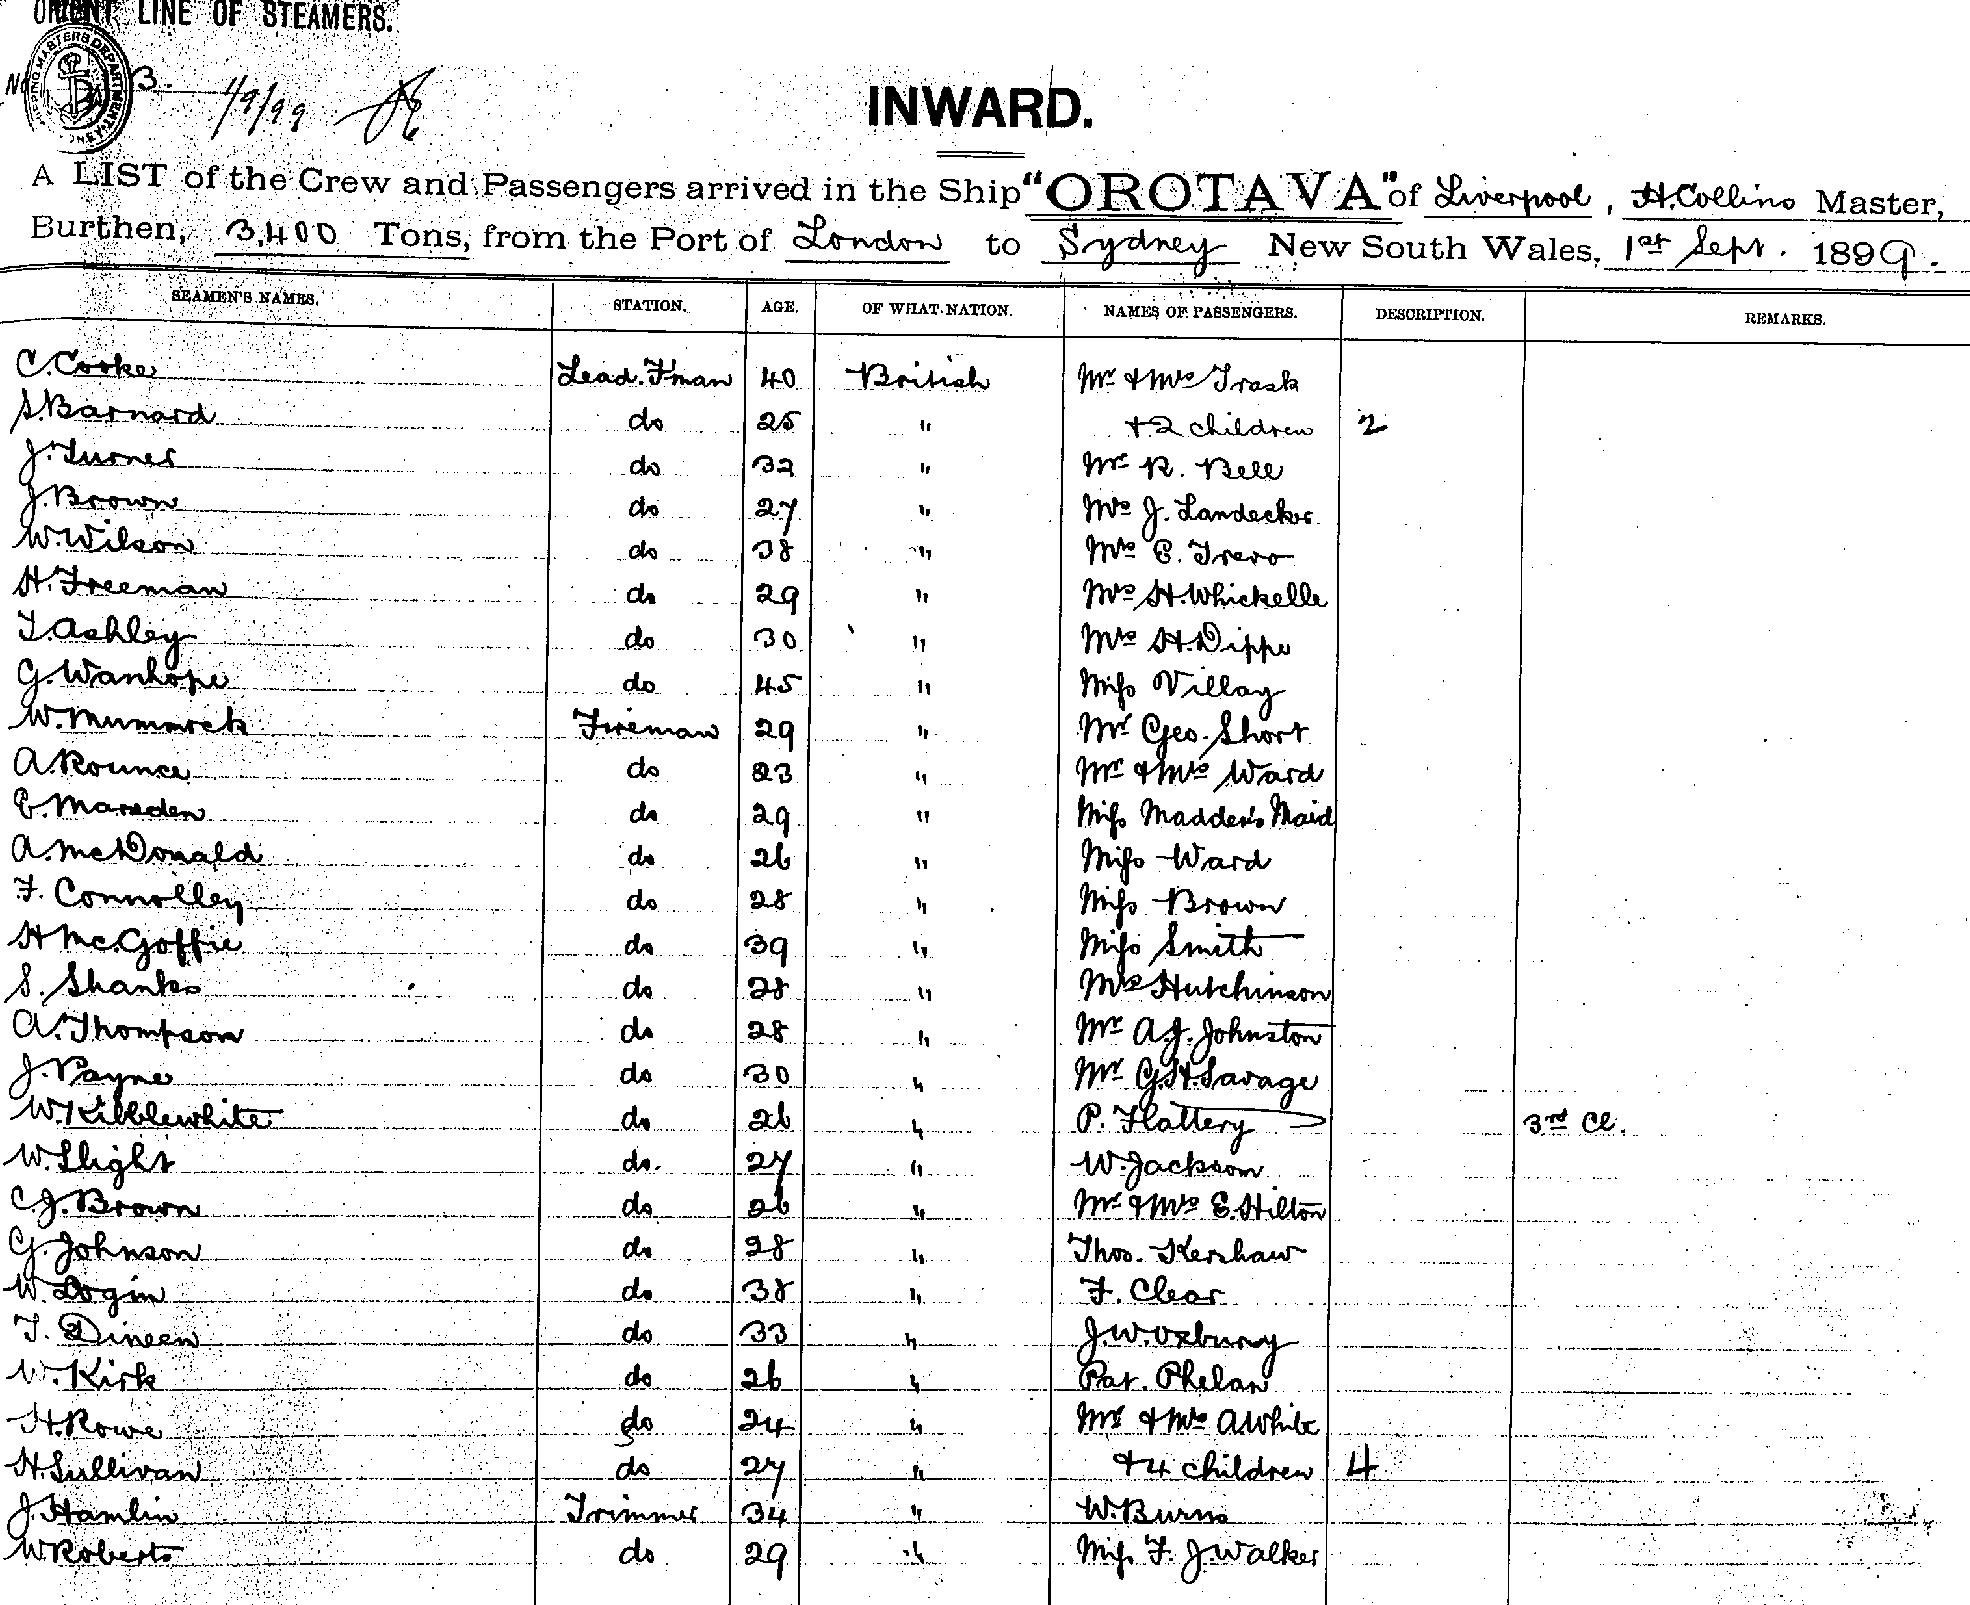 ORIENT LINE OF STEAMERS.
No 3. 1/9/99
INWARD.
A LIST of the Crew and Passengers arrived in the Ship "OROTAVA" of Liverpool, H. Collins Master,
Burthen, 3,400 Tons, from the Port of London to Sydney New South Wales, 1st Sept. 1899.
SEAMEN'S NAMES. STATION. AGE. OF WHAT NATION. NAMES OF PASSENGERS. DESCRIPTION. REMARKS.
C. Cooke Lead. Fman 40 British Mr & Mrs Trask
S. Barnard do 25 " + 2 children 2
J. Turner do 32 " Mr R. Bell
J. Brown do 27 " Mrs J. Landecker
W. Wilson do 38 " Mrs E. Trevo
H. Freeman do 29 " Mrs H. Whickelle
T. Ashley do 30 " Mrs H. Dippe
G. Wanhope do 45 " Miss Villay
W. Mummock Fireman 29 " Mr Geo. Short
A. Rounce do 23 " Mr & Mrs Ward
E. Marsden do 29 " Miss Madden's Maid
A. McDonald do 26 " Miss Ward
F. Connolley do 28 " Miss Brown
H Mc.Goffie do 39 " Miss Smith
S. Shanks do 28 " Mrs Hutchinson
A. Thompson do 28 " Mr A.J. Johnston
J. Payne do 30 " Mr G.H. Savage
W. Kibblewhite do 26 " P. Flattery 3rd Cl.
W. Slight do. 27 " W. Jackson
C.J. Brown do 26 " Mr & Mrs E. Hilton
G. Johnson do 28 " Thos. Kershaw
W. Login do 38 " F. Clear
T. Dineen do 33 " J.W. Oxbury
W. Kirk do 26 " Pat. Phelan
H. Rowe do 24 " Mr & Mrs A White
H. Sullivan do 27 " + 4 children 4
J. Hamlin Trimmer 34 " W. Burns
W Roberts do 29 " Miss F. J. Walker